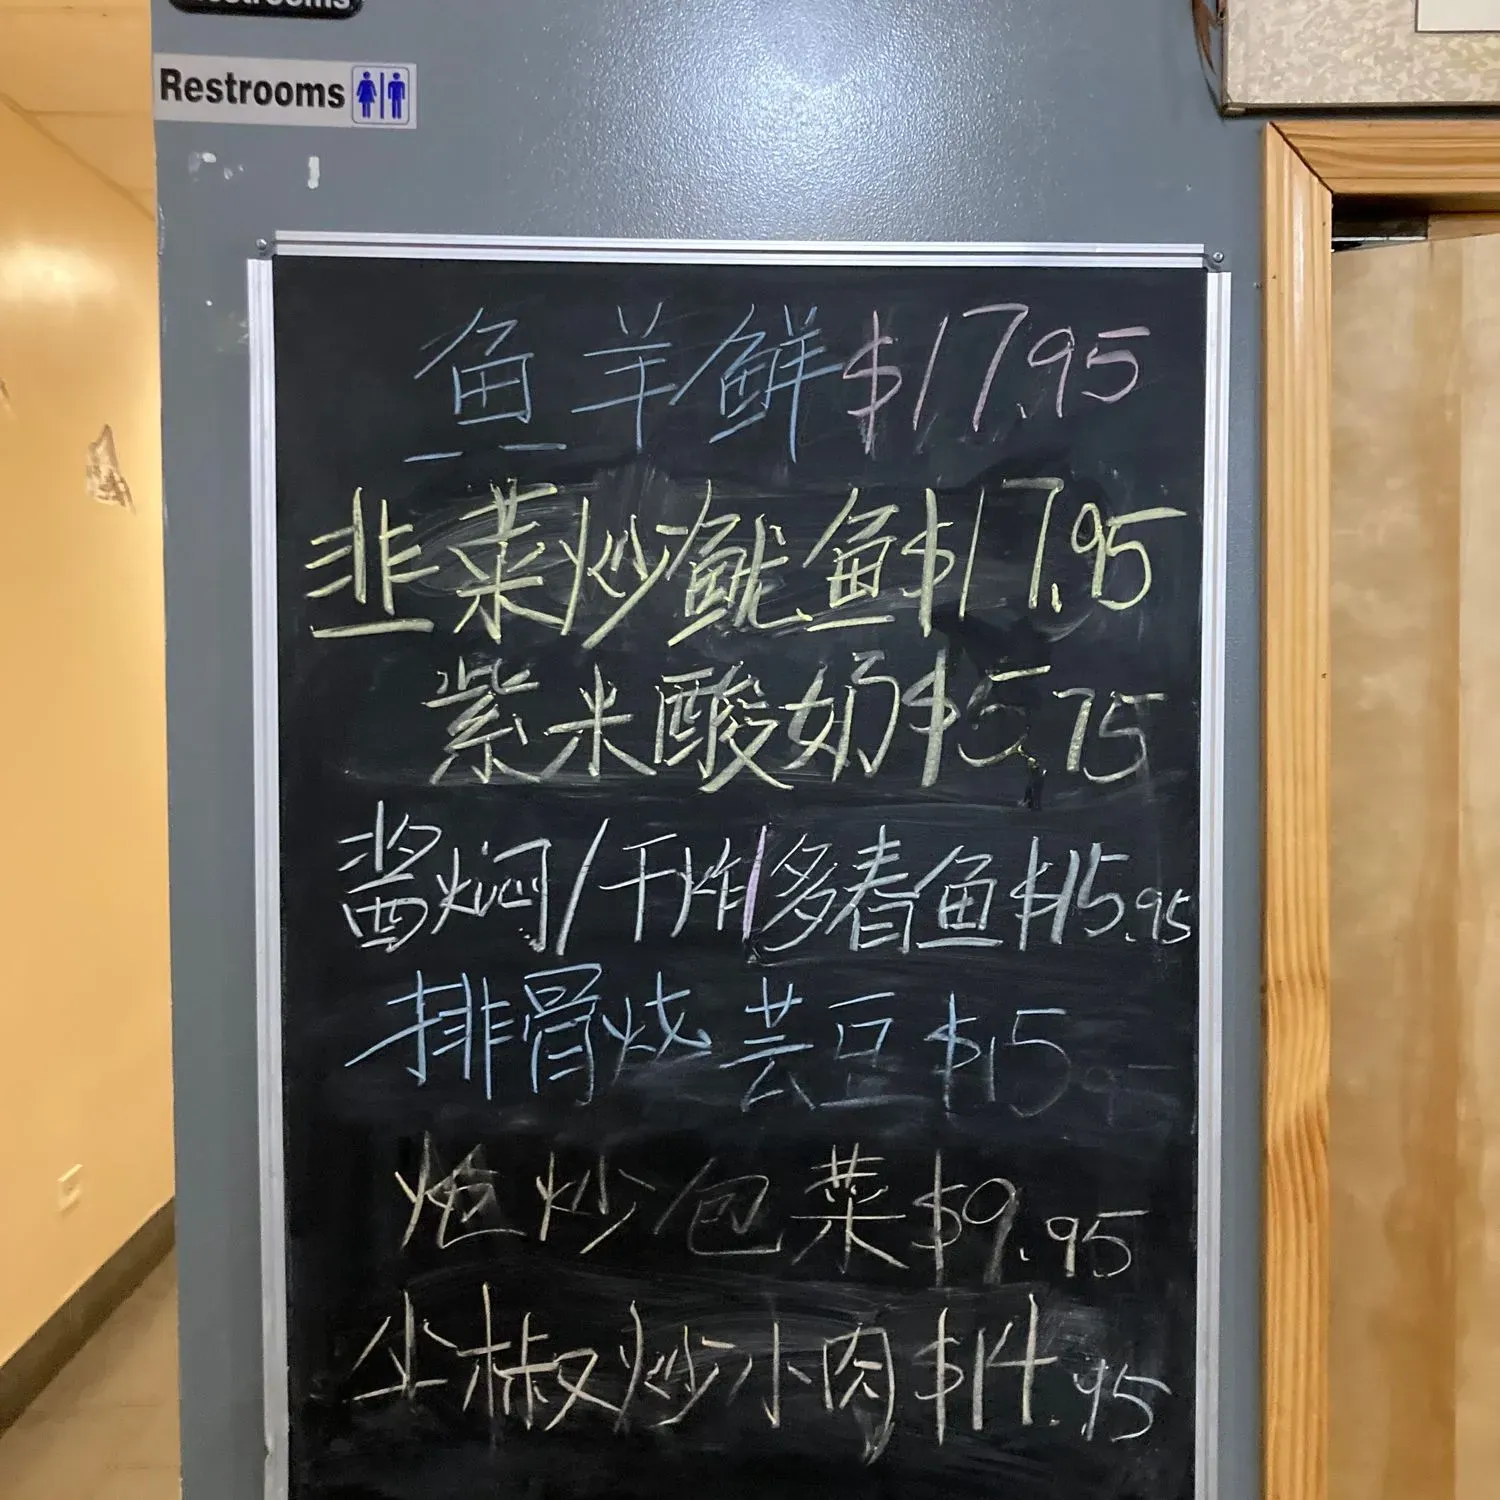 Restrooms
Restrooms
鱼羊鲜$17.95
韭菜炒鱿鱼$17.95
紫米酸奶$5.75
酱焖/干炸多春鱼$15.95
排骨烧芸豆$15.95
炝炒包菜$9.95
尖椒炒小肉$14.95